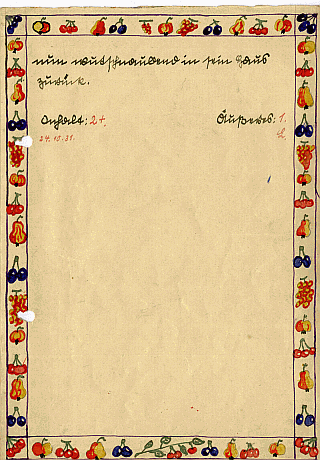 nun wutschnaubend in sein Haus
zurück.
Inhalt: 2+. Äußeres: 1.
24.10.31.